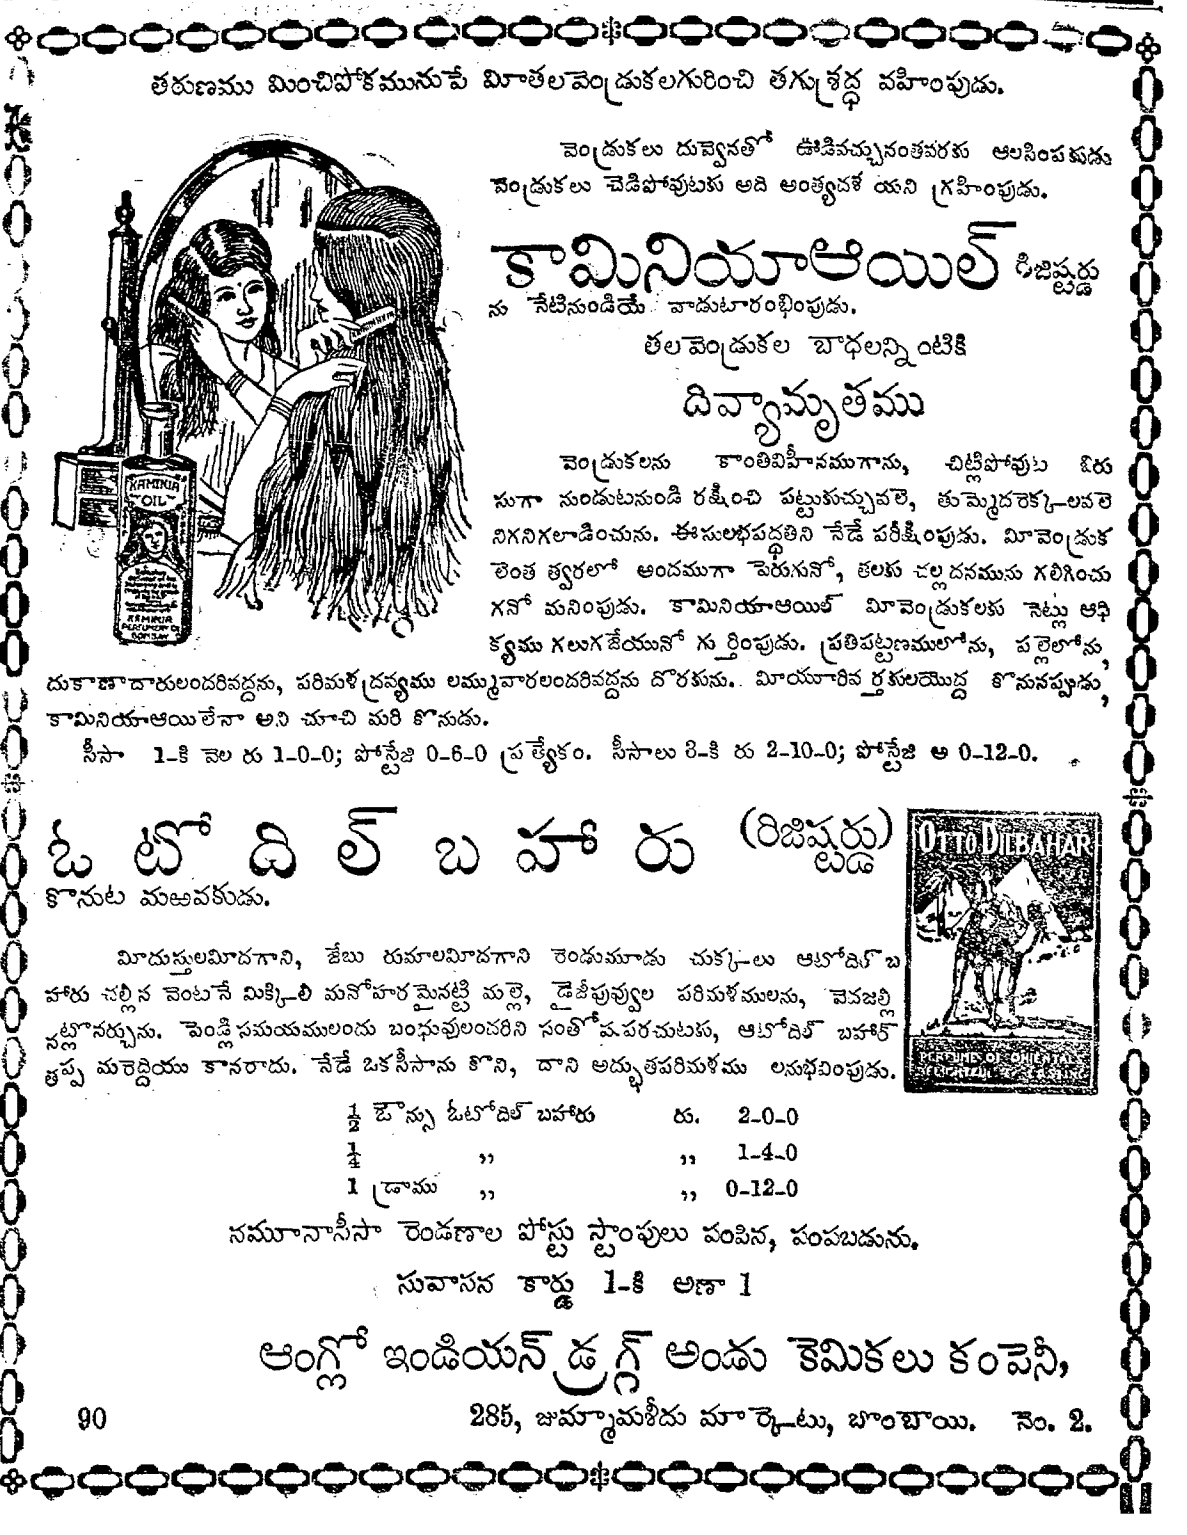 తరుణము మించిపోకమునుపే మీతలవెండ్రుకలగురించి తగుశ్రద్ధ వహింపుడు.
వెండ్రుకలు దువ్వెనతో ఊడివచ్చునంతవరకు ఆలసింపకుడు
వెండ్రుకలు చెడిపోవుటకు అది అంత్యదశ యని గ్రహింపుడు.
కామినియాఆయిల్ రిజిష్టర్డు
ను నేటినుండియే వాడుటారంభింపుడు.
తలవెండ్రుకల బాధలన్నింటికి
దివ్యామృతము
వెండ్రుకలను కాంతివిహీనముగాను, చిట్లిపోవుట బిరు
సుగా నుండుటనుండి రక్షించి పట్టుకుచ్చువలె, తుమ్మెదరెక్కలవలె
నిగనిగలాడించును. ఈసులభపద్ధతిని నేడే పరీక్షింపుడు. మీవెండ్రుక
లెంత త్వరలో అందముగా పెరుగునో, తలకు చల్లదనమును గలిగించు
గనో మనింపుడు. కామినియాఆయిల్ మీవెండ్రుకలకు నెట్లు ఆధి
క్యము గలుగజేయునో గుర్తింపుడు. ప్రతిపట్టణములోను, పల్లెలోను,
దుకాణాదారులందరివద్దను, పరిమళద్రవ్యము లమ్మువారలందరివద్దను దొరకును. మీయూరివర్తకులయొద్ద కొనునప్పుడు,
కామినియాఆయిలేనా అని చూచి మరి కొనుడు.
సీసా 1-కి వెల రు 1-0-0; పోస్టేజి 0-6-0 ప్రత్యేకం. సీసాలు 3-కి రు 2-10-0; పోస్టేజి అ 0-12-0.
KAMINIA
OIL
KAMINIA
PERFUMERY CO
BOMBAY
ఓటోదిల్ బహారు (రిజిష్టర్డు)
కొనుట మఱవకుడు.
OTTO DILBAHAR
మీదుస్తులమీదగాని, జేబు రుమాలమీదగాని రెండుమూడు చుక్కలు ఆటోదిల్ బ
హారు చల్లిన వెంటనే మిక్కిలి మనోహరమైనట్టి మల్లె, డైజీపువ్వుల పరిమళములను, వెదజల్లి
నట్లొనర్చును. పెండ్లిసమయములందు బంధువులందరిని సంతోషపరచుటకు, ఆటోదిల్ బహార్
తప్ప మరెద్దియు కానరాదు. నేడే ఒకసీసాను కొని, దాని అద్భుతపరిమళము లనుభవింపుడు.
PERFUME OF ORIENTAL
½ ఔన్సు ఓటోదిల్ బహారు రు. 2-0-0
¼ ,, ,, 1-4-0
1 డ్రాము ,, ,, 0-12-0
నమూనాసీసా రెండణాల పోస్టు స్టాంపులు పంపిన, పంపబడును.
సువాసన కార్డు 1-కి అణా 1
ఆంగ్లో ఇండియన్ డ్రగ్ అండు కెమికలు కంపెనీ,
285, జుమ్మామశీదు మార్కెటు, బొంబాయి. నెం. 2.
90